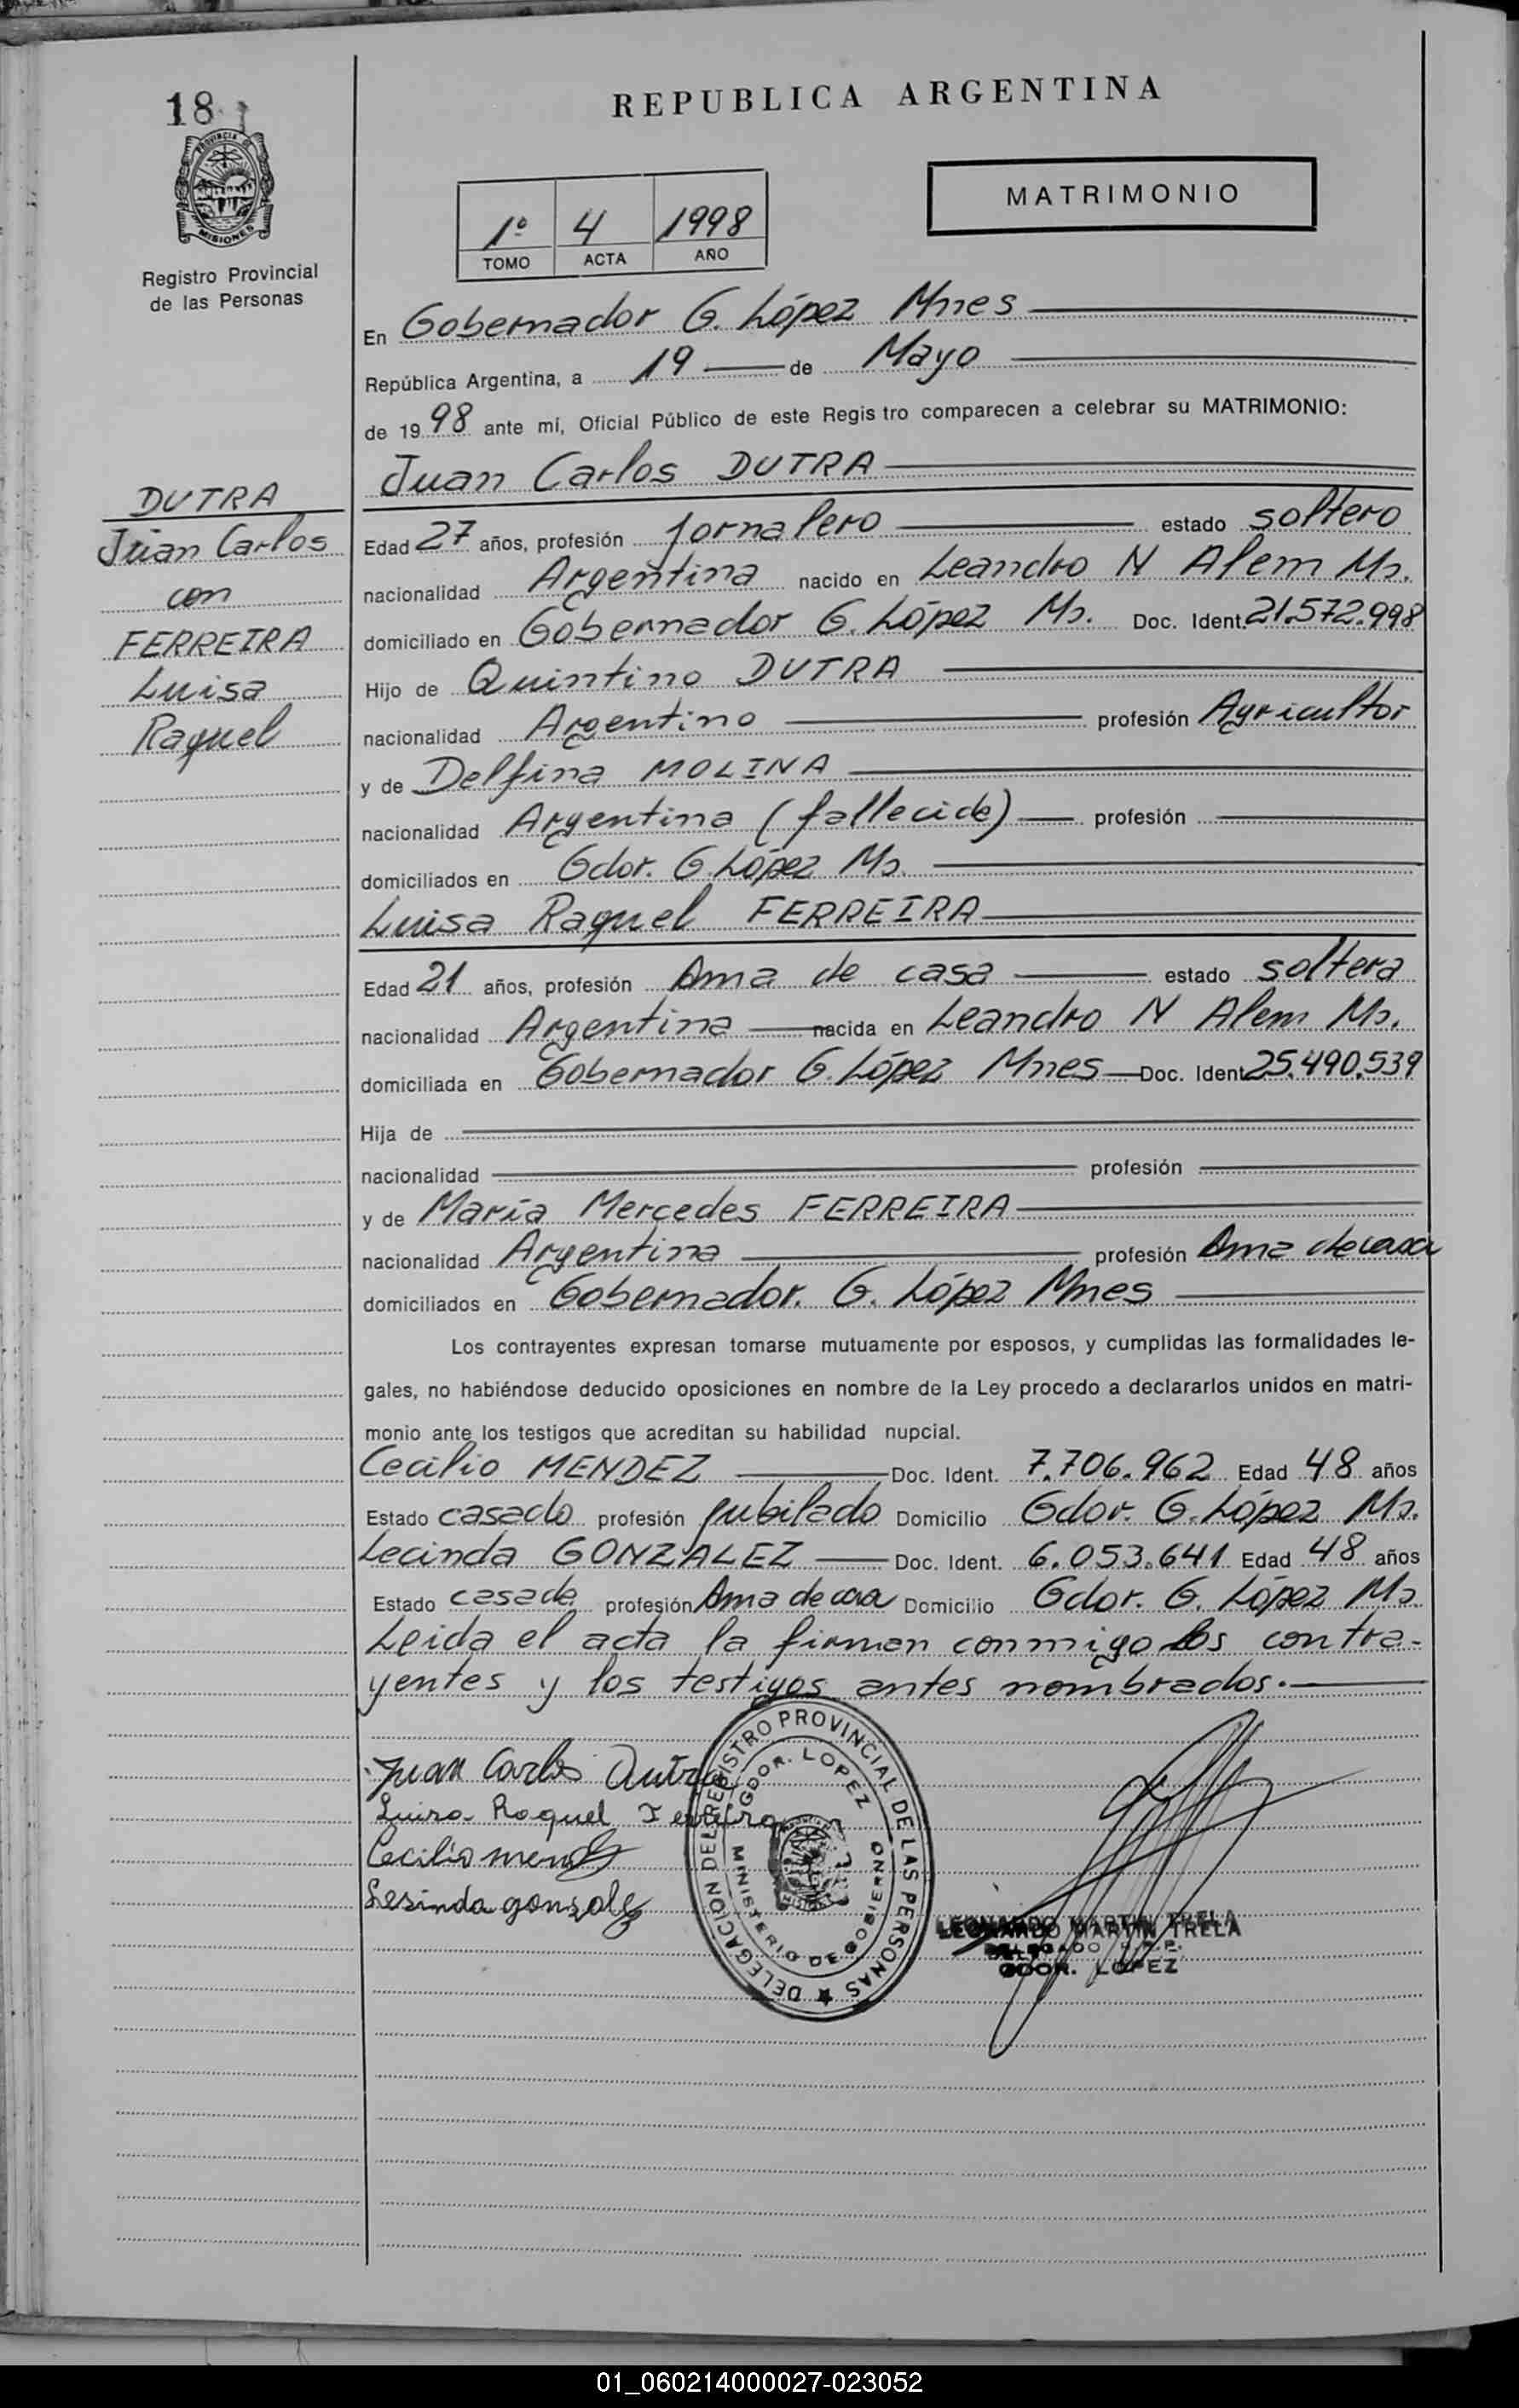 18
PROVINCIA DE
MISIONES
Registro Provincial
de las Personas
REPUBLICA ARGENTINA
1º 4 1998
TOMO ACTA AÑO
MATRIMONIO
En Gobernador G. López Mnes
República Argentina, a 19 de Mayo
de 1998 ante mí, Oficial Público de este Regis tro comparecen a celebrar su MATRIMONIO:
DUTRA
Juan Carlos
con
FERREIRA
Luisa
Raquel
Juan Carlos DUTRA
Edad 27 años, profesión Jornalero estado soltero
nacionalidad Argentina nacido en Leandro N Alem Ms.
domiciliado en Gobernador G. López Ms. Doc. Ident. 21.572.998
Hijo de Quintino DUTRA
nacionalidad Argentino profesión Agricultor
y de Delfina MOLINA
nacionalidad Argentina (fallecida) profesión
domiciliados en Gdor. G. López Ms.
Luisa Raquel FERREIRA
Edad 21 años, profesión Ama de casa estado soltera
nacionalidad Argentina nacida en Leandro N Alem Ms.
domiciliada en Gobernador G. López Mnes Doc. Ident 25.490.539
Hija de
nacionalidad profesión
y de María Mercedes FERREIRA
nacionalidad Argentina profesión Ama de casa
domiciliados en Gobernador. G. López Mnes
Los contrayentes expresan tomarse mutuamente por esposos, y cumplidas las formalidades le-
gales, no habiéndose deducido oposiciones en nombre de la Ley procedo a declararlos unidos en matri-
monio ante los testigos que acreditan su habilidad nupcial.
Cecilio MENDEZ Doc. Ident. 7.706.962 Edad 48 años
Estado casado profesión jubilado Domicilio Gdor. G. López Ms.
Lecinda GONZALEZ Doc. Ident. 6.053.641 Edad 48 años
Estado casada profesión Ama de casa Domicilio Gdor. G. López Ms.
Leida el acta la firman conmigo los contra-
yentes y los testigos antes nombrados.
Juan Carlos Dutra
Luisa Raquel Ferreira
Cecilio mendez
Lesinda gonzalez
DELEGACION DEL REGISTRO PROVINCIAL DE LAS PERSONAS
GDOR. LOPEZ
MINISTERIO DE GOBIERNO
LEONARDO MARTIN TRELA
DELEGADO R.P.P.
GDOR. LOPEZ
01_060214000027-023052